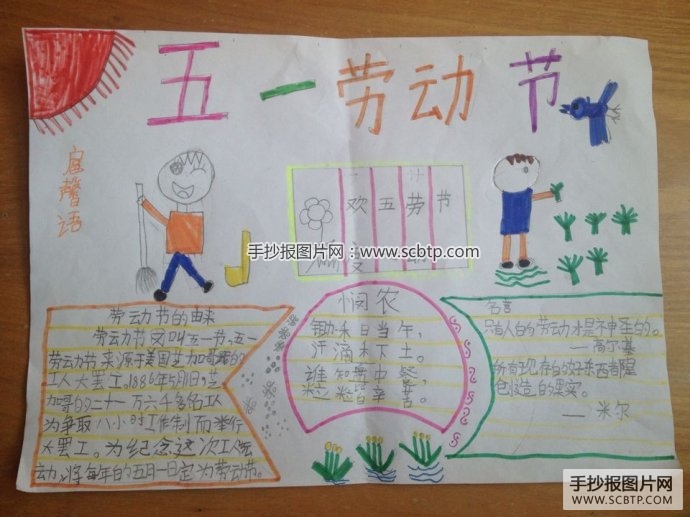 五一劳动节
启馨语
欢五劳节
手抄报图片网:www.scbtp.com
劳动节的由来
劳动节又叫五一节。五一
劳动节来源于美国芝加哥的
工人大罢工。1886年5月1日,芝
加哥的二十一万六千多名工人
为争取八小时工作制而举行
大罢工。为纪念这次工人运
动,将每年的五月一日定为劳动节。
悯农
锄禾日当午,
汗滴禾下土。
谁知盘中餐,
粒粒皆辛苦。
名言
只有人的劳动才是神圣的。
——高尔基
所有现存的好东西都是
创造的果实。
——米尔
手抄报图片网
WWW.SCBTP.COM